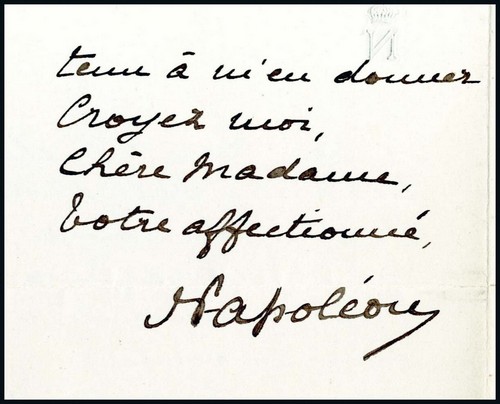 tenu à m'en donner
Croyez moi,
Chère Madame,
Votre affectionné,
Napoléon